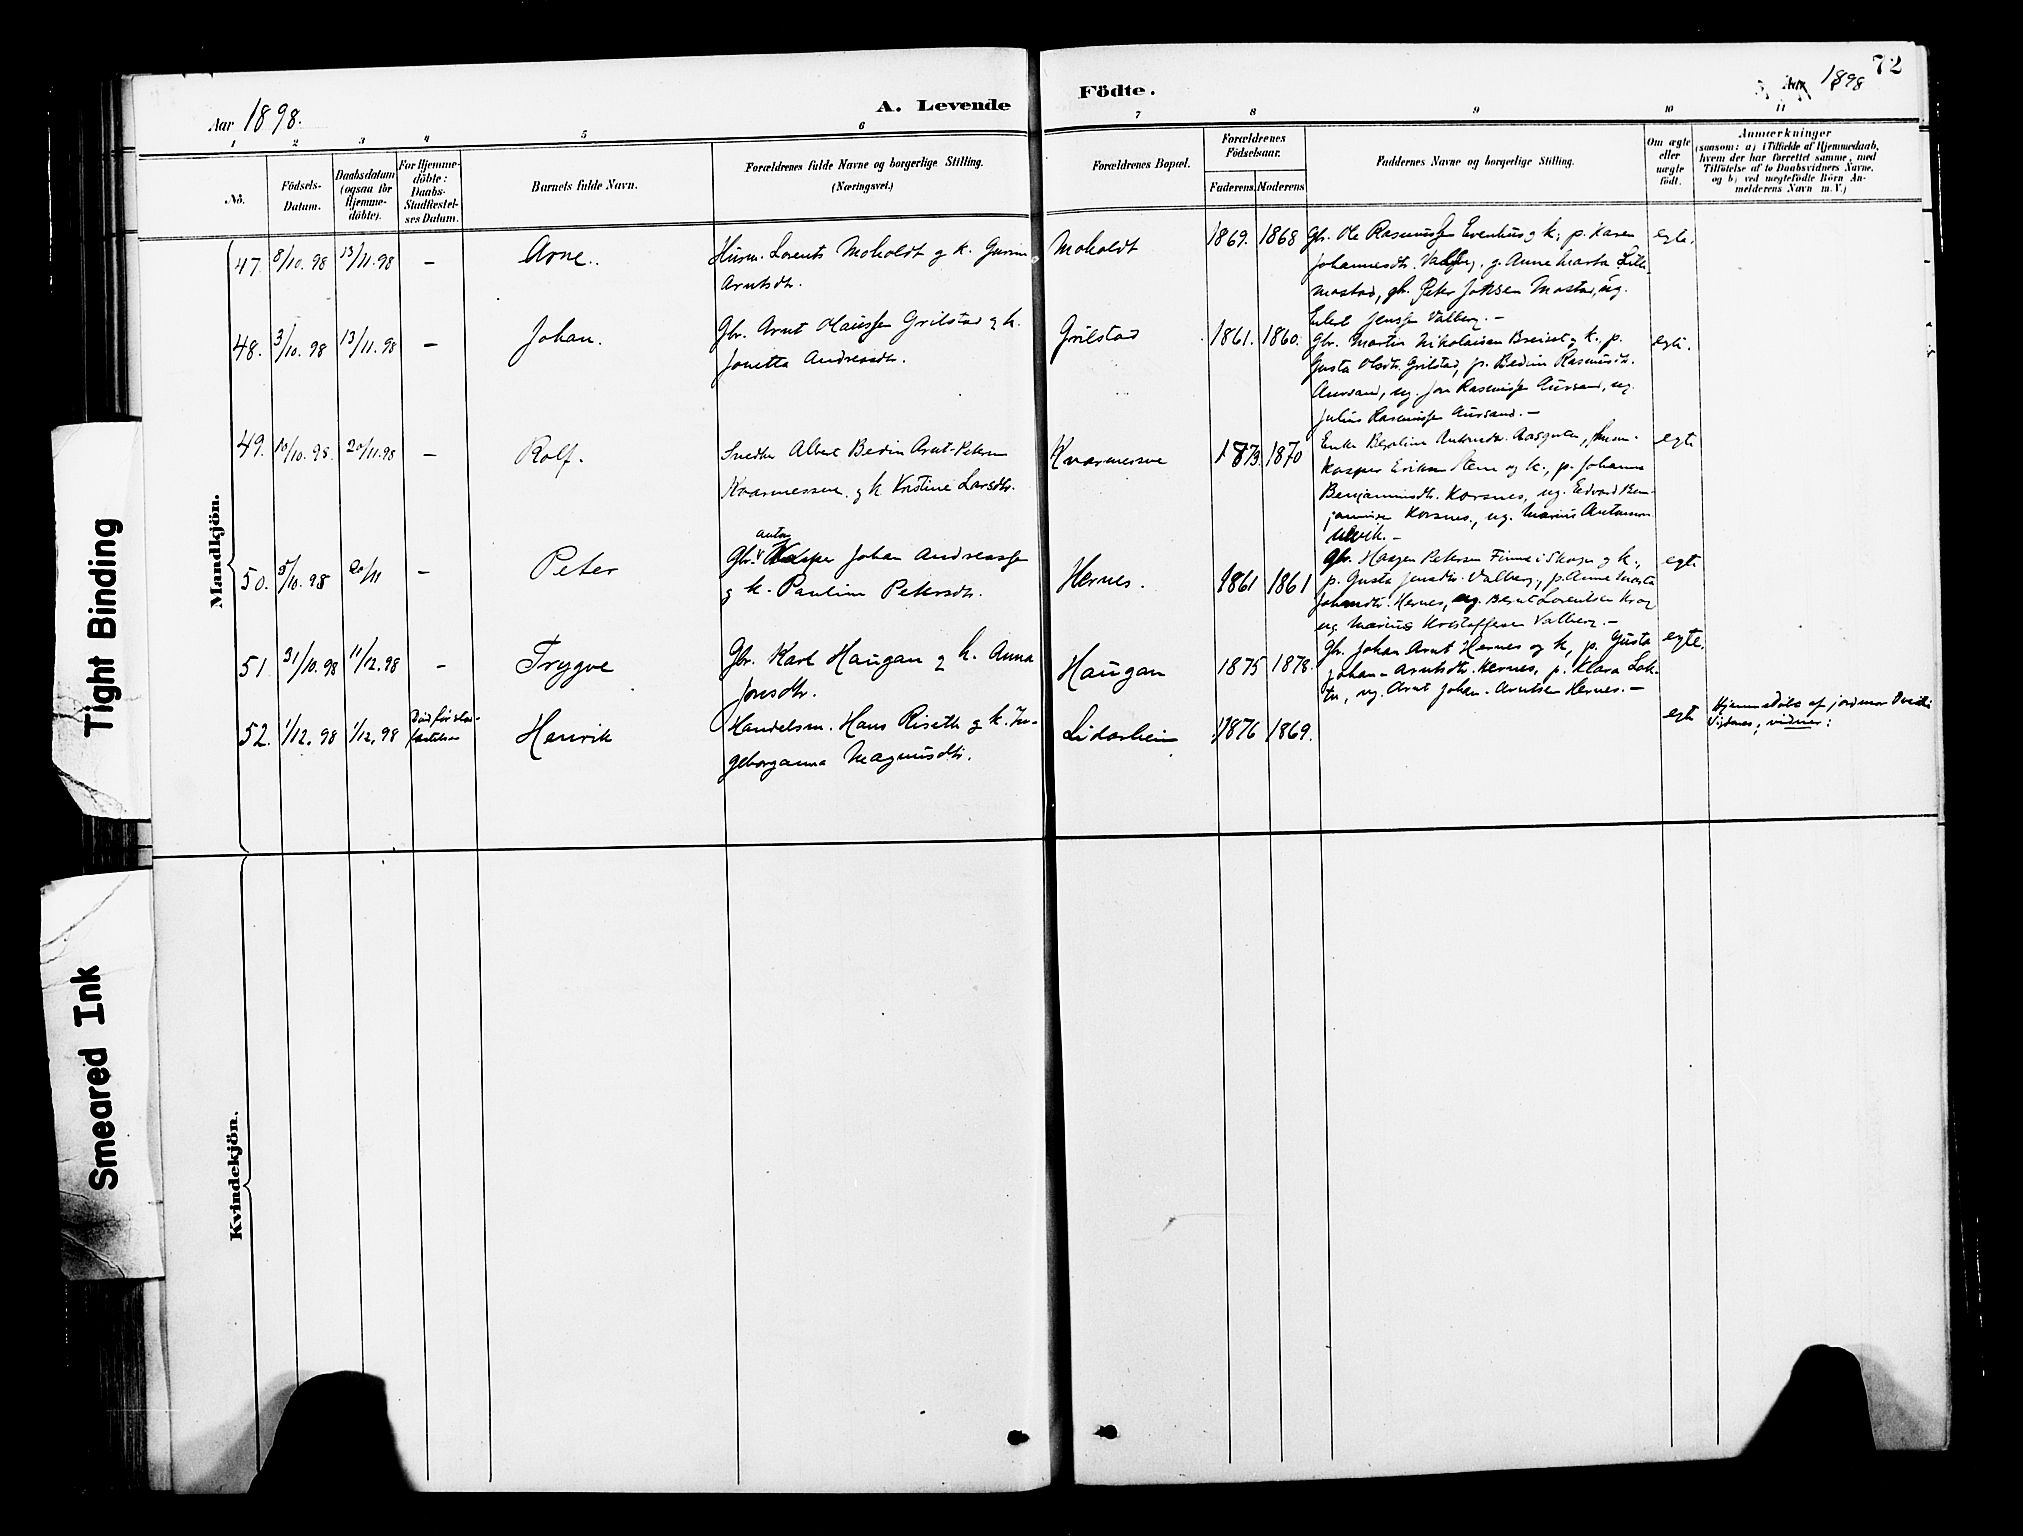 Tight Binding
Smeared Ink
72
Aar 1898.
A. Levende
Födte.
Aar 1898
1 2 3 4 5 6 7 8 9 10 11
No.
Födsels-
Datum.
Daabsdatum
(ogsaa for
Hjemme-
döbte).
For Hjemme-
döbte:
Daabs-
Stadfæstel-
ses Datum.
Barnets fulde Navn.
Forældrenes fulde Navne og borgerlige Stilling.
(Næringsvei.)
Forældrenes Bopæl.
Forældrenes
Födselsaar.
Faderens.
Moderens.
Faddernes Navne og borgerlige Stilling.
Om ægte
eller
uægte
födt.
Anmærkninger
(saasom: a) i Tilfælde af Hjemmedaab,
hvem der har forrettet samme, med
Tilföielse af to Daabsvidners Navne,
og b) ved uægtefödte Börn An-
melderens Navn m. V.)
Mandkjön.
47. 8/10. 98 13/11. 98 – Arne.
Husm. Lorents Moholdt g k. Gurin
Arntsdtr.
Moholdt 1869. 1868
Gbr. Ole Rasmussen Evenhus g k; p. Karen
Johannesdtr. Valberg. p. Anne Marta Lille-
mostad, gbr. Peter Johnsen Mostad, ug.
Enkel Jenssen Valberg. –
egte.
48. 3/10. 98 13/11. 98 – Johan.
Gbr. Arnt Olaussen Grilstad g k.
Jonetta Andreasdtr.
Grilstad 1861. 1860.
Gbr. Martin Nikolaisen Breiset g k., p.
Gusta Olsdtr. Grilstad, p. Bedine Rasmusdtr.
Aursand, ug. Jon Rasmussen Aursand, ug.
Julius Rasmussen Aursand. –
egte.
49. 10/10. 98. 20/11. 98 – Rolf.
Snedker Albert Bedin Arnt Petersen
Kvarmesson g k Kristine Larsdtr.
1873. 1870
Enke Beroline Antonsdtr.
Kasper Eriksen Steen og k., p. Johanna
Benjaminsdtr. Korsnes, ug. Edvard Ben-
jaminsen Korsnes, ug. Marius Antonsen
Ulvik. –
egte
50. 5/10. 98 20/11 – Peter
Anton
Gbr. Kasper Johan Andreassen
g k. Pauline Petersdtr.
Hernes. 1861 1861
gbr. Haagen Petersen Finne i Skogn g k.,
p. Gusta Jensdtr. Valberg, p. Anne Marta
Johansdtr. Hernes, ug. Bernt Lorentsen Krog
ug. Marius Kristoffersen Valberg. –
egte
51. 31/10. 98 11/12. 98 – Trygve
Gbr. Karl Haugan g k. Anna
Jonsdtr.
Haugan 1875 1878.
Gbr. Johan Arnt Hernes og k, p. Gusta
Johan-Arntsdtr. Hernes, p. Klara Lok-
tu, ug. Arnt Johan-Arntsen Hernes. –
egte.
52. 1/12. 98 1/12, 98 Död för stad-
fæstelsen Henrik
Handelsm. Hans Riseth g k. In-
geborganna Magnusdtr.
Lidarheim 1876 1869.
egte
Hjemmedöbt af jordmor
Vignes; vidner:
Kvindekjön.